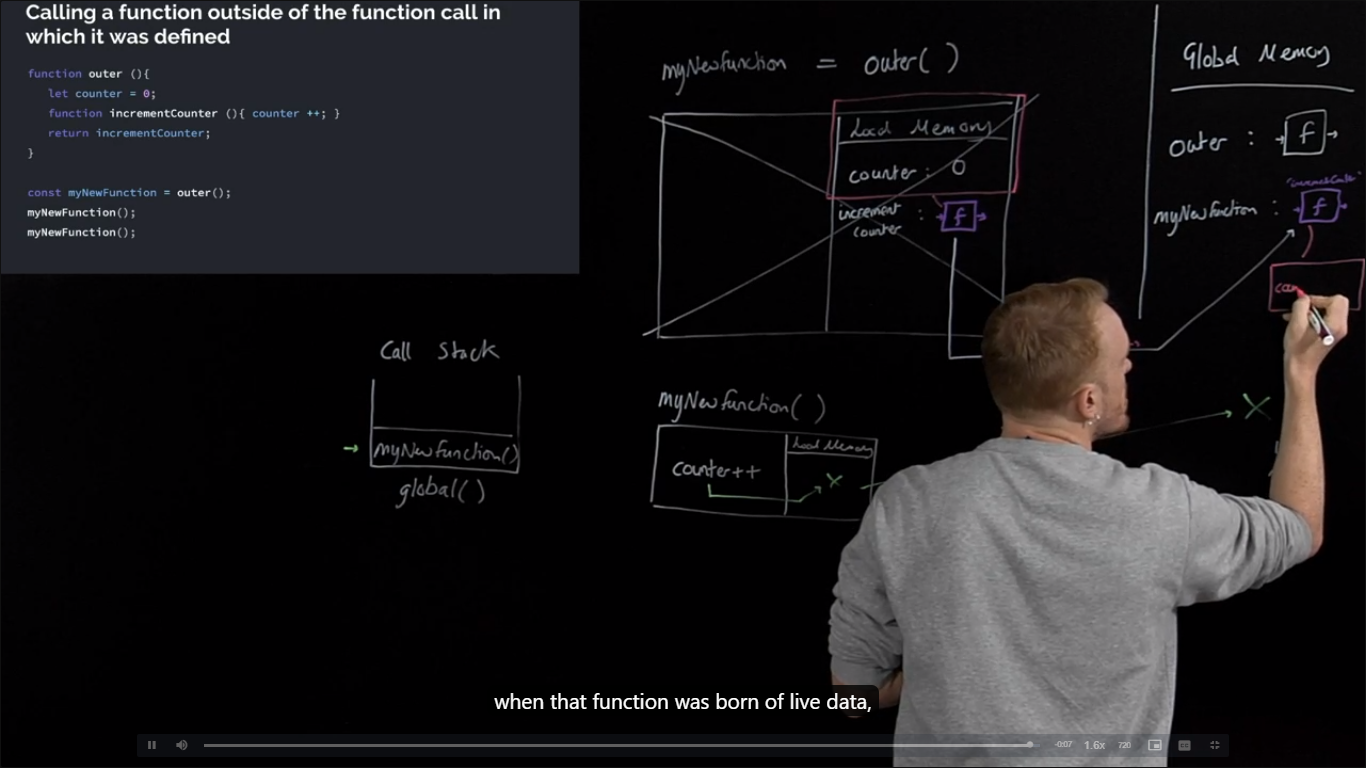 Calling a function outside of the function call in
which it was defined
function outer (){
let counter = 0;
function incrementCounter (){ counter ++; }
return incrementCounter;
}
const myNewFunction = outer();
myNewFunction();
myNewFunction();
myNewfunction = outer( )
Local Memory
counter : 0
increment : f
counter
Global Memory
outer : f
"incrementCounter"
myNewfunction : f
Call Stack
myNewfunction()
global()
myNewfunction( )
Local Memory
counter++
when that function was born of live data,
-0:07
1.6x
720